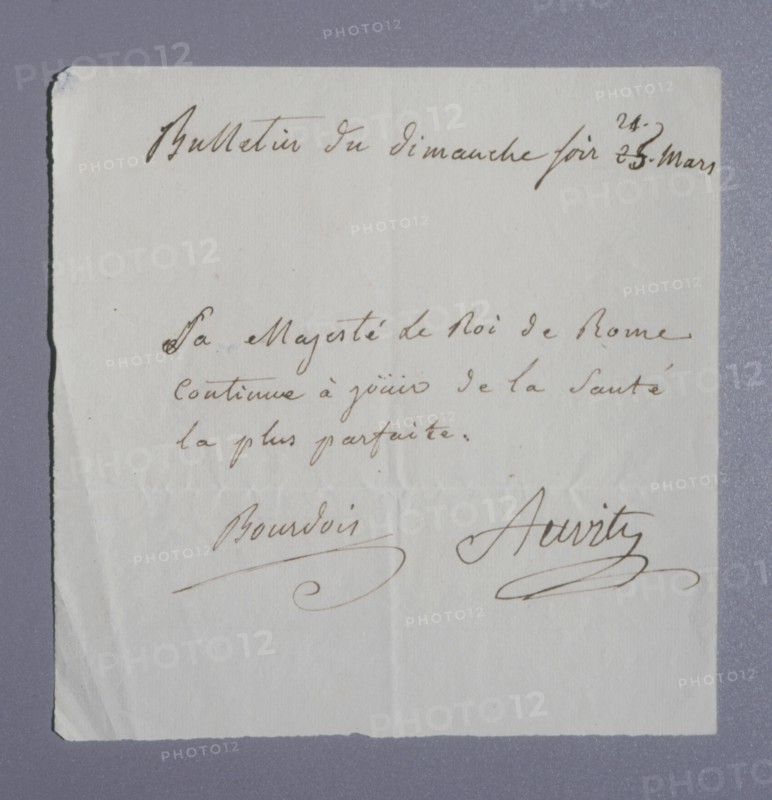 24.
Bulletin du dimanche soir 25. Mars
Sa Majesté Le Roi de Rome
Continue à joüir de la Santé
la plus parfaite.
Bourdois Auvity
PHOTO12